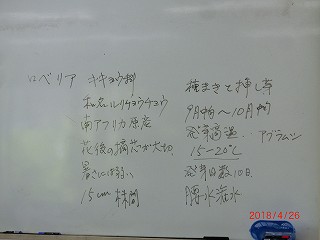 ロベリア キキョウ科
和名ルリチョウチョウ
南アフリカ原産
花後の摘芯が大切.
暑さには弱い
15cm 株間
種まきと挿し芽
9月中旬〜10月中旬
発芽適温 ... アブラムシ
15-20℃
発芽日数10日.
腰水灌水
2018/4/26